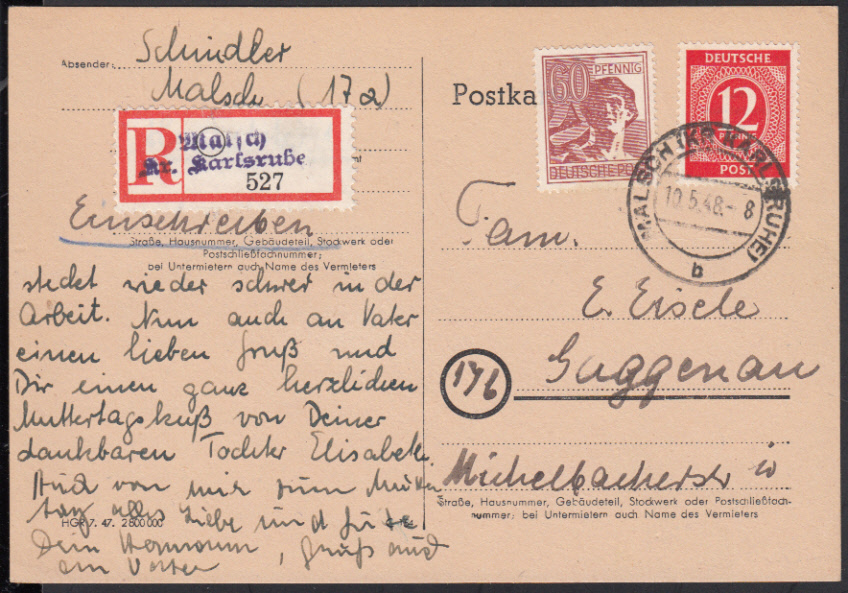 Absender:
Schindler
Malsch (17a)
R
Malsch
Kr. Karlsruhe
527
Einschreiben
Straße, Hausnummer, Gebäudeteil, Stockwerk oder
Postschließfachnummer;
bei Untermietern auch Name des Vermieters
steckt wieder schwer in der
Arbeit. Nun auch an Vater
einen lieben Gruß und
Dir einen ganz herzlichen
Muttertagskuß von Deiner
dankbaren Tochter Elisabeth
Auch von mir zum Mutter
tag alles Liebe und Gute
Dein Hermann, Gruß auch
an Vater
HGR 7. 47. 2800000
Postka
60 PFENNIG
DEUTSCHE PO
DEUTSCHE
12
PFENNIG
POST
MALSCH (KR. KARLSRUHE)
10.5.48.- 8
b
Fam.
E. Eisele
17b
Gaggenau
Michelbacherstr 10
Straße, Hausnummer, Gebäudeteil, Stockwerk oder Postschließfach-
nummer; bei Untermietern auch Name des Vermieters